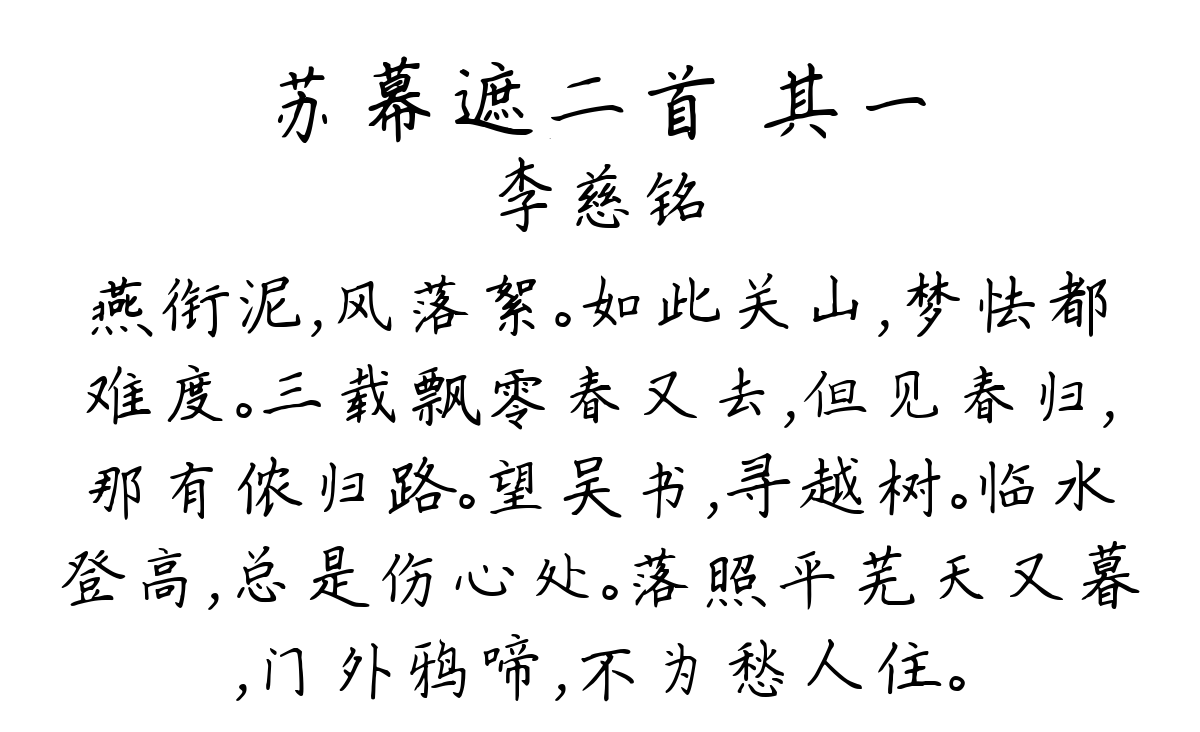 苏幕遮二首 其一
李慈铭
燕衔泥,风落絮。如此关山,梦怯都
难度。三载飘零春又去,但见春归,
那有侬归路。望吴书,寻越树。临水
登高,总是伤心处。落照平芜天又暮
,门外鸦啼,不为愁人住。